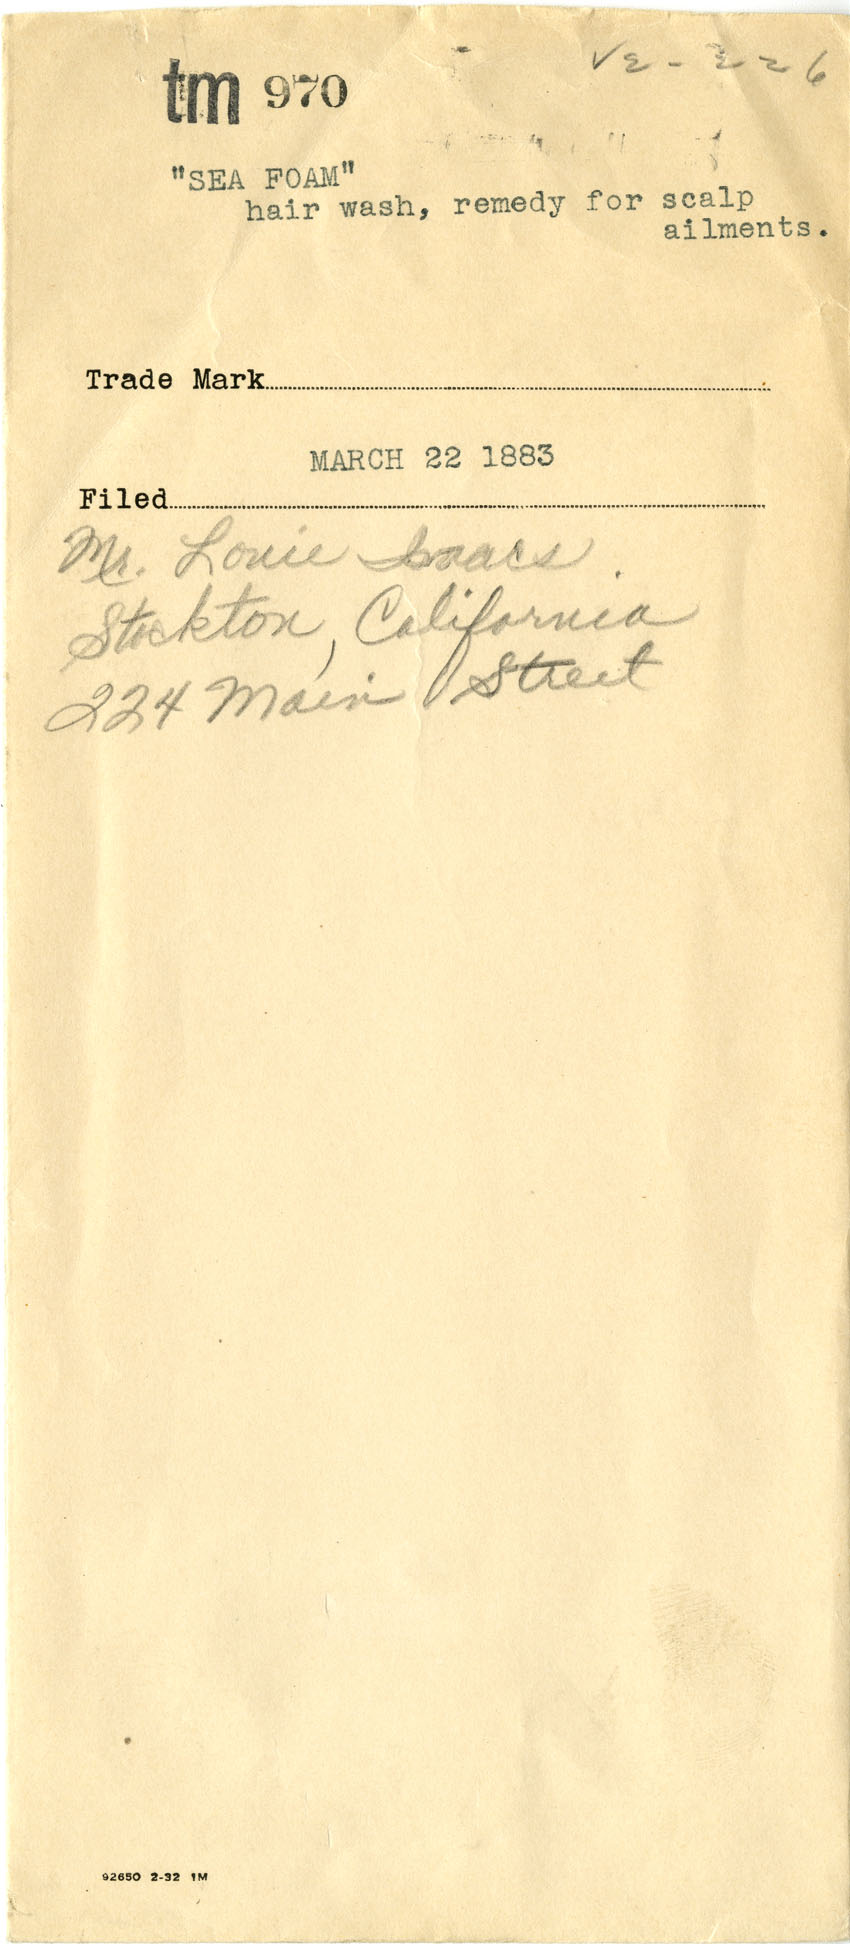 tm 970
"SEA FOAM"
hair wash, remedy for scalp
ailments.
Trade Mark
MARCH 22 1883
Filed
Mr. Louie Isaacs
Stockton, California
224 Main Street
92650 2-32 1M